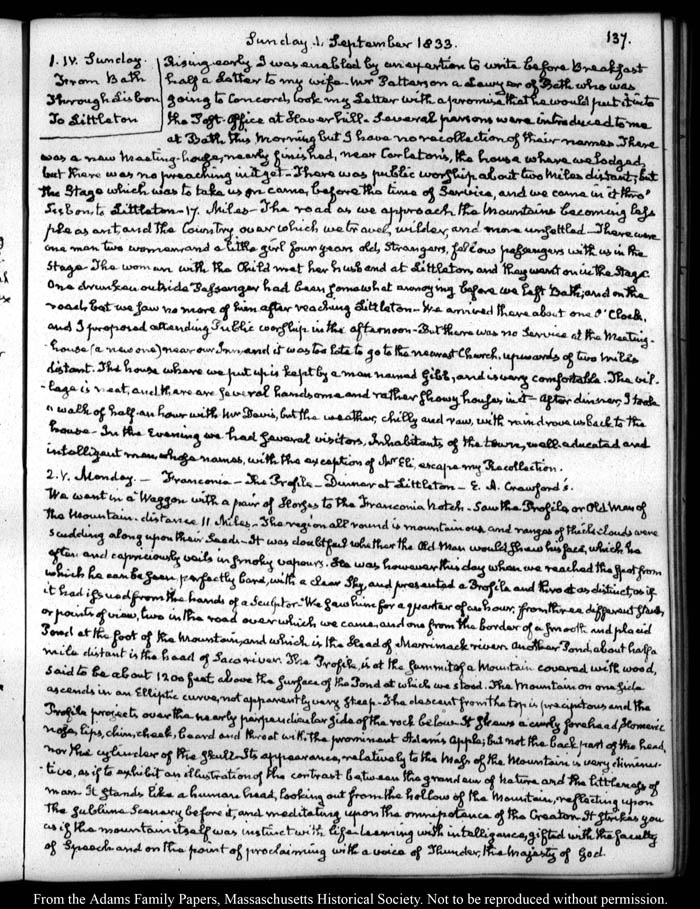 Sunday 1. September 1833. 137.
1. IV. Sunday.
From Bath
Through Lisbon
To Littleton
Rising early I was enabled by an exertion to write before Breakfast
half a Letter to my wife. Mr Patterson a Lawyer of Bath who was
going to Concord, took my Letter with a promise that he would put it into
the Post-Office at Haverhill. Several persons were introduced to me
at Bath this Morning but I have no recollection of their names. There
was a new Meeting-house, nearly finished, near Carleton's, the house where we lodged,
but there was no preaching in it yet. There was public worship about two Miles distant; but
the Stage which was to take us on came, before the time of Service, and we came in it thro'
Lisbon to Littleton - 17. Miles - The road as we approach the Mountains becoming less
pleasant, and the Country over which we travel, wilder, and more unsettled - There were
one man two women and a little girl four years old, Strangers, fellow passengers with us in the
Stage - The woman with the Child met her husband at Littleton, and they went on in the Stage.
One drunken outside Passenger had been somewhat annoying before we left Bath; and on the
road, but we saw no more of him after reaching Littleton - We arrived there about one O'Clock,
and I proposed attending Public worship in the afternoon - But there was no Service at the Meeting-
-house (a new one) near our Inn and it was too late to go to the nearest Church, upwards of two miles
distant. The house where we put up is kept by a man named Gibb, and is very comfortable. The vil-
-lage is neat, and there are several handsome and rather showy houses, in it - After dinner, I took
a walk of half an hour with Mr Davis, but the weather, chilly and raw, with rain drove us back to the
house - In the Evening we had several visitors, Inhabitants of the town, well-educated and
intelligent men, whose names, with the exception of Mr Eli, escape my Recollection.
2. V. Monday. - Franconia - The Profile - Dinner at Littleton - E. A. Crawford's.
We went in a Waggon with a pair of Horses to the Franconia Notch - Saw the Profile, or Old Man of
the Mountain - distance 11 Miles - The region all round is mountainous, and ranges of thick clouds were
scudding along upon their heads - It was doubtful whether the Old Man would shew his face, which he
often and capriciously veils in smoky vapours. It was however this day when we reached the spot from
which he can be seen perfectly bare, with a clear Sky, and presented a Profile and throat as distinct, as if
it had issued from the hands of a Sculptor - We saw him for a quarter of an hour, from three different places,
or points of view, two in the road over which we came, and one from the border of a smooth and placid
Pond at the foot of the Mountain, and which is the Head of Merrimack river. Another Pond, about half a
mile distant is the head of Saco river. The Profile, is at the summit of a Mountain covered with wood,
said to be about 1200 feet above the surface of the Pond at which we stood. The Mountain on one side
ascends in an Elliptic curve, not apparently very steep - The descent from the top is precipitous and the
Profile projects over the nearly perpendicular side of the rock below. It shews a curly forehead, Homeric
nose, lips, chin, cheek, beard and throat with the prominent Adam's Apple; but not the back part of the head,
nor the cylinder of the skull - Its appearance, relatively to the Mass of the Mountain is very diminu-
-tive, as if to exhibit an illustration of the contrast between the grandeur of Nature and the littleness of
man. It stands like a human head, looking out from the hollow of the Mountain, reflecting upon
the sublime Scenary before it, and meditating upon the omnipotence of the Creator. It strikes you
as if the mountain itself was instinct with life - beaming with intelligence, gifted with the faculty
of Speech and on the point of proclaiming with a voice of Thunder, the Majesty of God.
From the Adams Family Papers, Massachusetts Historical Society. Not to be reproduced without permission.